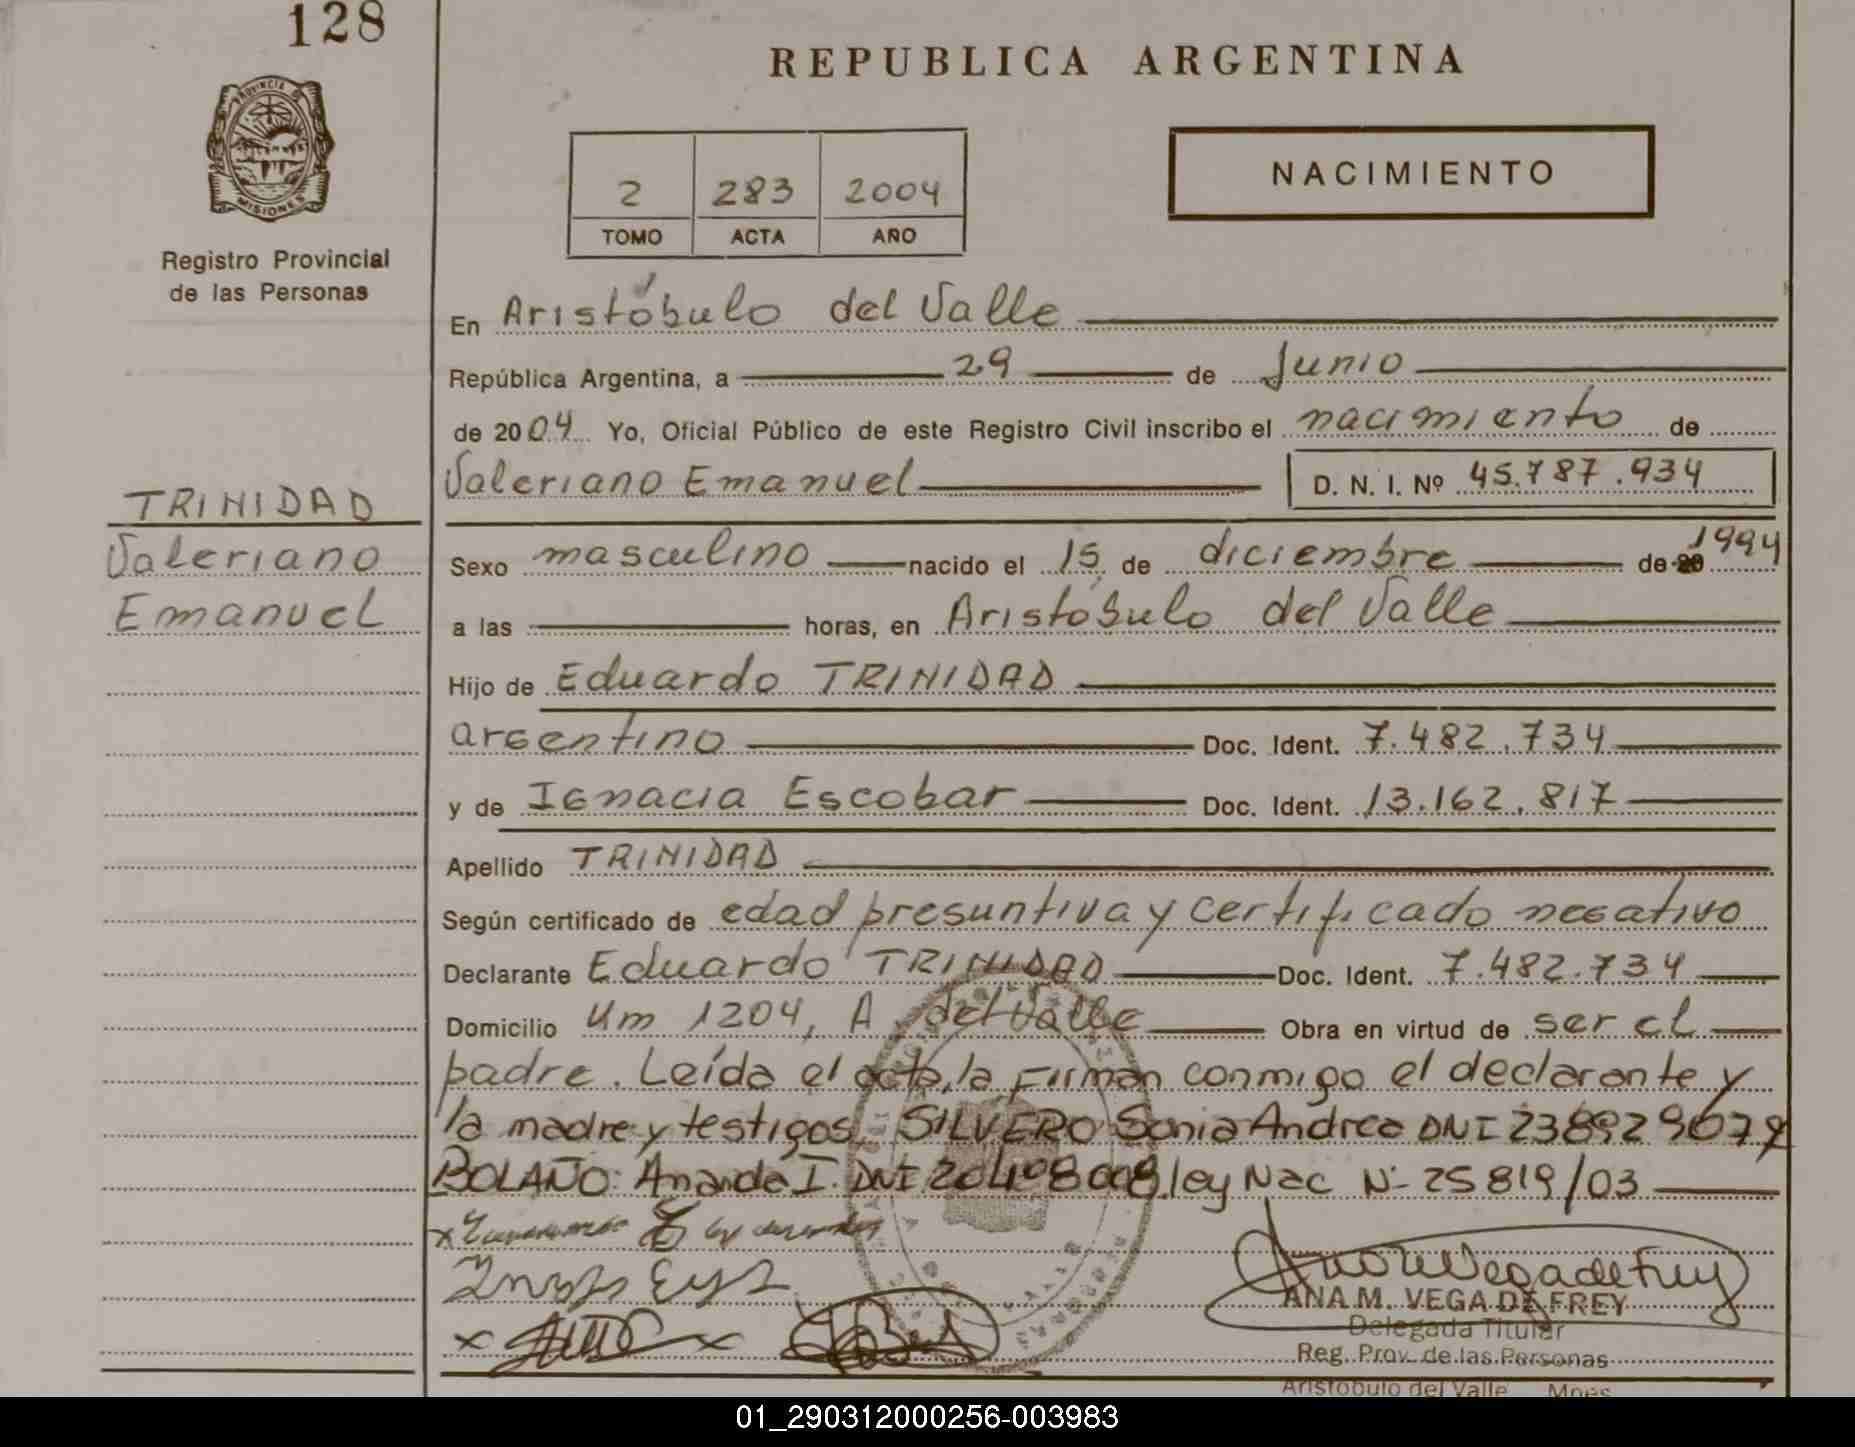 128
REPUBLICA ARGENTINA
PROVINCIA D
MISIONES
NACIMIENTO
2 283 2004
TOMO ACTA AÑO
Registro Provincial
de las Personas
En Aristóbulo del Valle
República Argentina, a 29 de Junio
de 2004 Yo, Oficial Público de este Registro Civil inscribo el nacimiento de
Valeriano Emanuel D. N. I. Nº 45.787.934
TRINIDAD
Valeriano
Emanuel
Sexo masculino nacido el 15 de diciembre de 20 1994
a las horas, en Aristóbulo del Valle
Hijo de Eduardo TRINIDAD
argentino Doc. Ident. 7.482.734
y de Ignacia Escobar Doc. Ident. 13.162.817
Apellido TRINIDAD
Según certificado de edad presuntiva y certificado negativo
Declarante Eduardo TRINIDAD Doc. Ident. 7.482.734
Domicilio Km 1204, A. del Valle Obra en virtud de ser el
padre. Leída el acta, la firman conmigo el declarante y
la madre y testigos SILVERO Sonia Andrea DNI
BOLAÑO: Amanda I. DNI 20408008 ley Nac Nº 25819/03
ANA M. VEGA DE FREY
Delegada Titular
Reg. Prov. de las Personas
Aristobulo del Valle Mnes
01_290312000256-003983